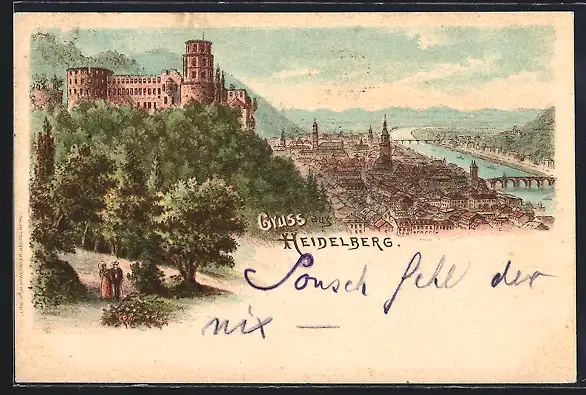 Gruss aus
Heidelberg.
Sonsch fehl der
nix —